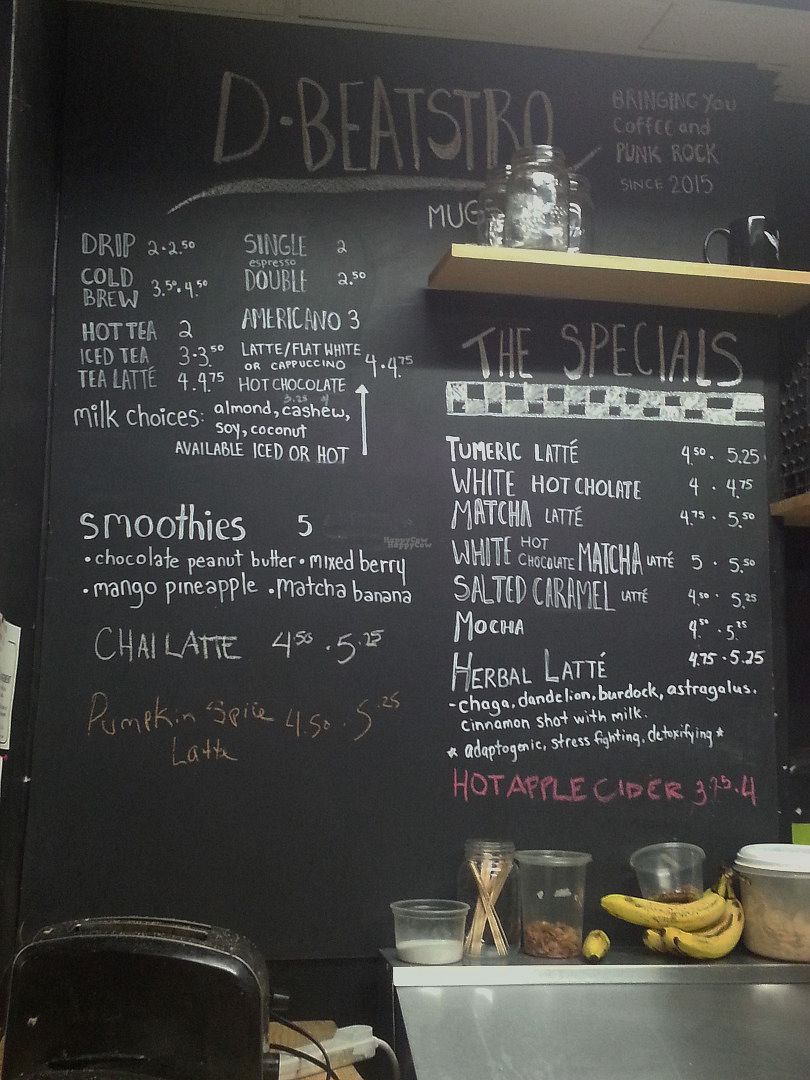 D·BEATSTRO
BRINGING YOU
Coffee and
PUNK ROCK
SINCE 2015
MUGS
DRIP 2·2.50
COLD BREW 3.50·4.50
HOT TEA 2
ICED TEA 3·3.50
TEA LATTÉ 4·4.75
SINGLE 2
espresso
DOUBLE 2.50
AMERICANO 3
LATTE/FLAT WHITE
OR CAPPUCCINO 4·4.75
HOT CHOCOLATE
3.25 4
milk choices: almond, cashew,
soy, coconut
AVAILABLE ICED OR HOT
smoothies 5
•chocolate peanut butter •mixed berry
•mango pineapple •matcha banana
CHAI LATTE 4.50·5.25
Pumpkin Spice 4.50·5.25
Latte
THE SPECIALS
TUMERIC LATTÉ 4.50·5.25
WHITE HOT CHOLATE 4·4.75
MATCHA LATTÉ 4.75·5.50
WHITE HOT CHOCOLATE MATCHA LATTÉ 5·5.50
SALTED CARAMEL LATTÉ 4.50·5.25
MOCHA 4.50·5.25
HERBAL LATTÉ 4.75·5.25
-chaga, dandelion, burdock, astragalus.
cinnamon shot with milk.
*adaptogenic, stress fighting, detoxifying*
HOT APPLE CIDER 3.25·4
HappyCow
HappyCow